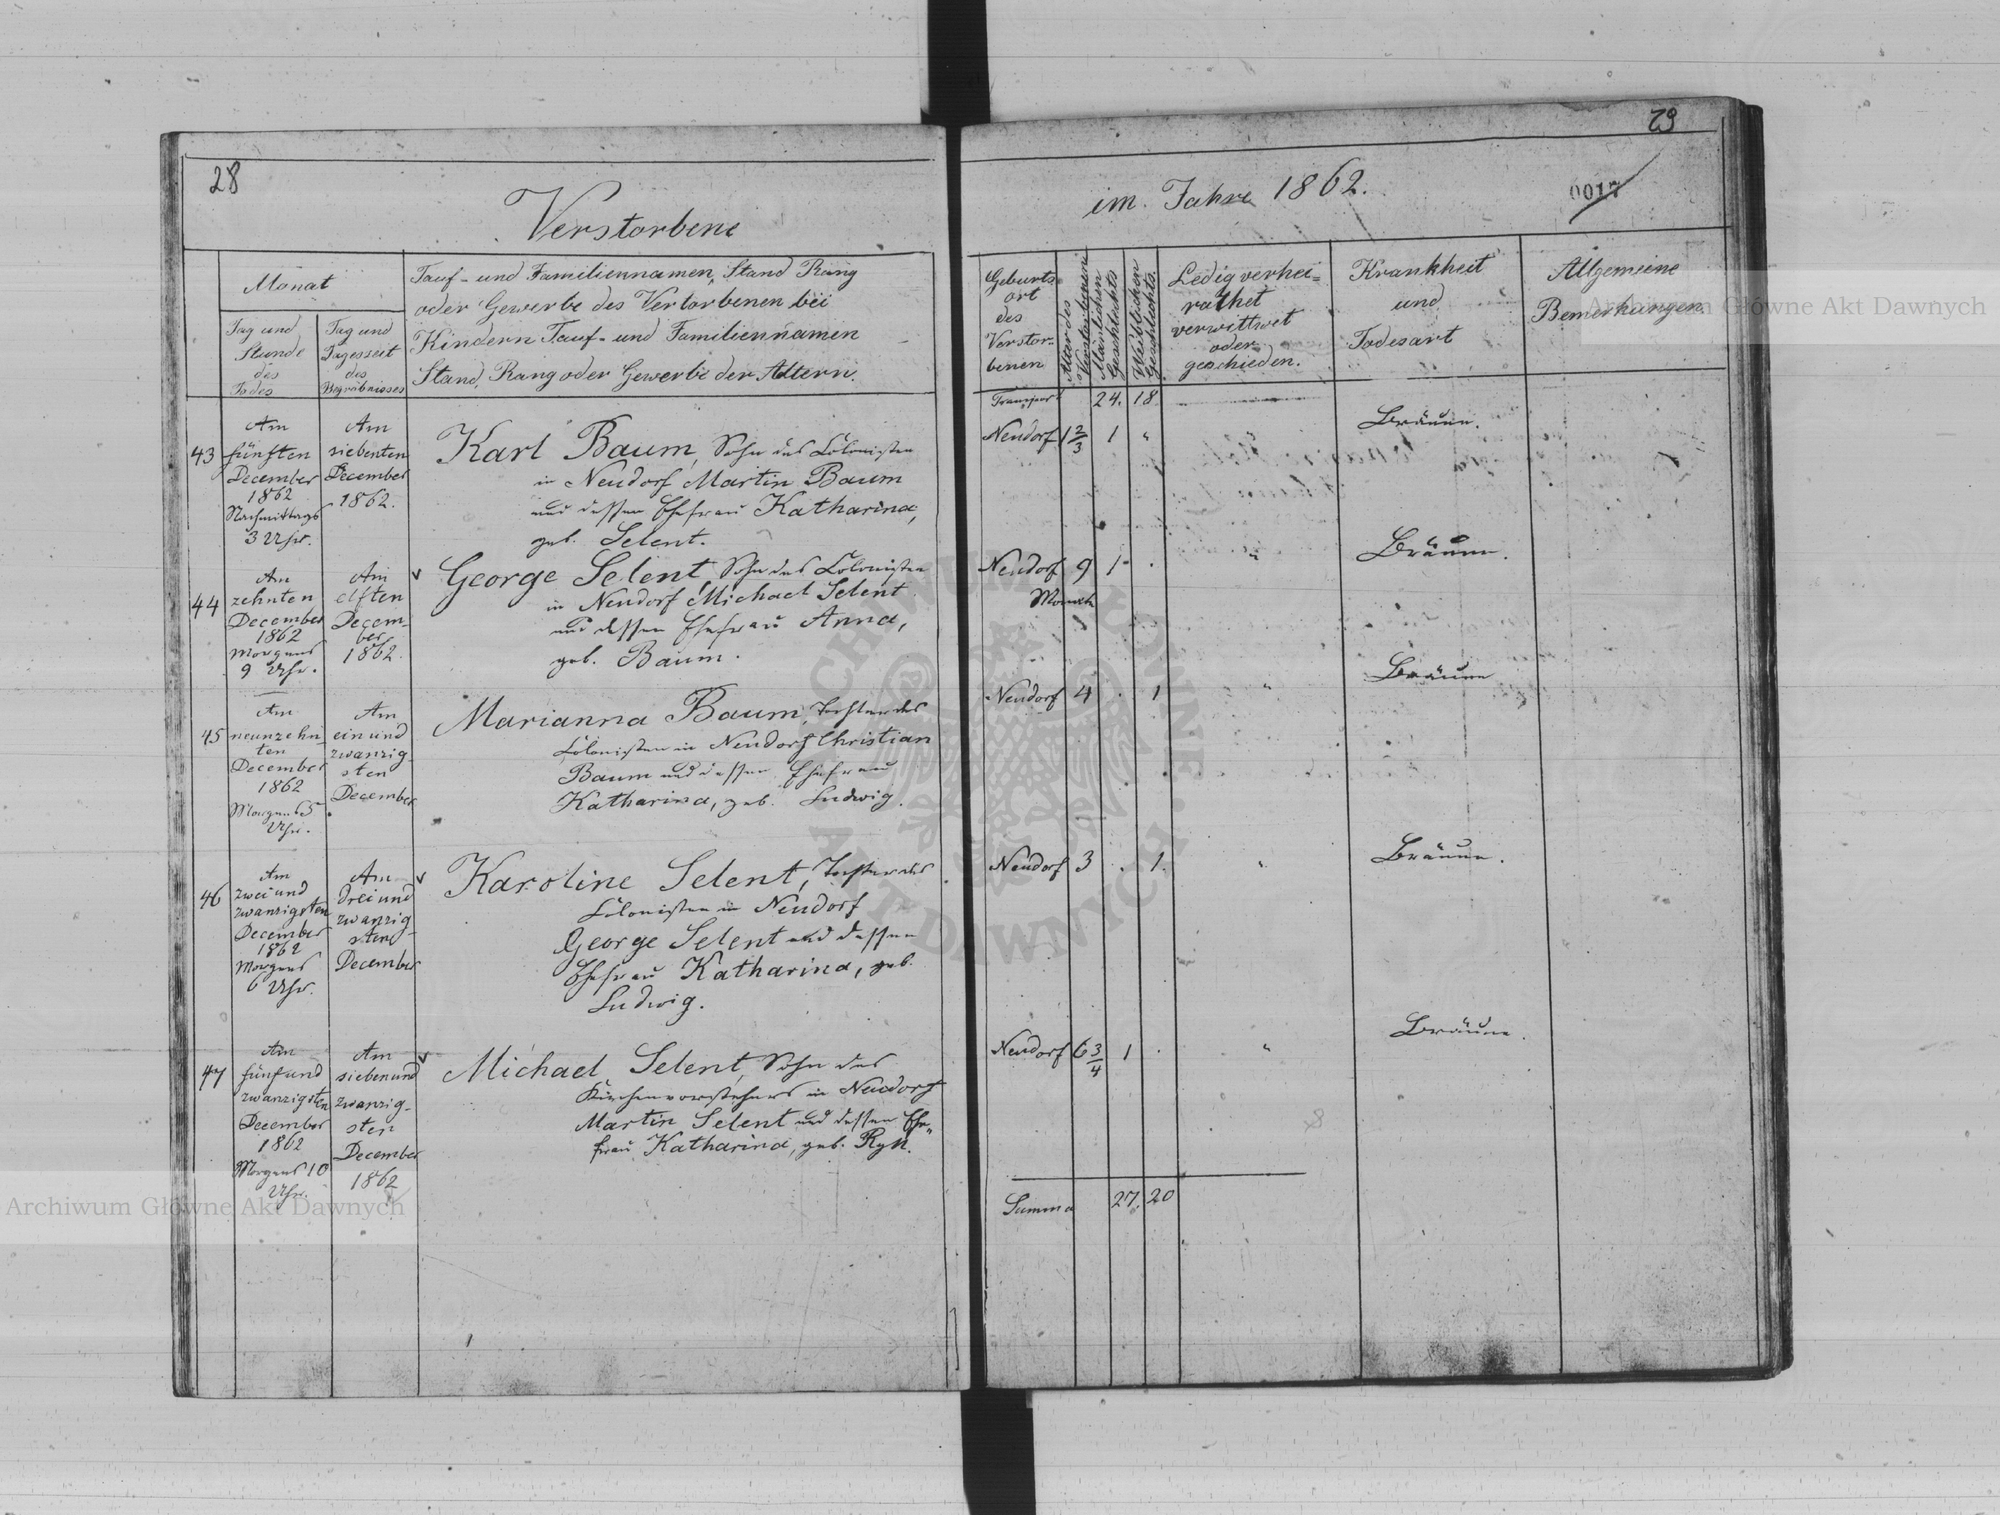 28
Verstorbene
Monat
Tag und
Stunde
des
Todes
Tag und
Tageszeit
des
Begräbnisses
Tauf- und Familiennamen, Stand Rang
oder Gewerbe des Vertorbenen bei
Kindern Tauf- und Familiennamen
Stand, Rang oder Gewerbe der Altern.
43
Am
fünften
December
1862
Nachmittags
3 Uhr.
Am
siebenten
December
1862.
Karl Baum, Sohn des Colonisten
in Neudorf Martin Baum
und dessen Ehefrau Katharina,
geb. Selent.
44
Am
zehnten
December
1862
Morgens
9 Uhr.
Am
elften
Decem-
ber
1862.
George Selent, Sohn des Colonisten
in Neudorf Michael Selent
und dessen Ehefrau Anna,
geb. Baum.
45
Am
neunzehn-
ten
December
1862
Morgens 5
Uhr.
Am
ein und
zwanzig-
sten
December
Marianna Baum, Tochter des
Colonisten in Neudorf Christian
Baum und dessen Ehefrau
Katharina, geb. Ludwig.
46
Am
zwei und
zwanzigsten
December
1862
Morgens
6 Uhr.
Am
drei und
zwanzig-
sten
December
Karoline Selent, Tochter des
Colonisten in Neudorf
George Selent und dessen
Ehefrau Katharina, geb.
Ludwig.
47
Am
fünf und
zwanzigsten
December
1862
Morgens 10
Uhr.
Am
sieben und
zwanzig-
sten
December
1862
Michael Selent, Sohn des
Kirchenvorstehers in Neudorf
Martin Selent und dessen Ehe-
frau Katharina, geb. Ryn.
29
im Jahre 1862.
0017
Geburts-
ort
des
Verstor-
benen
Alter des
Verstorbenen
Mänlichen
Geschlechts
Weiblichen
Geschlechts.
Ledig verhei-
rathet
verwittwet
oder
geschieden.
Krankheit
und
Todesart
Allgemeine
Bemerkungen.
Transport 24. 18
Neudorf 1 2/3 1 " Bräune.
Neudorf 9 1 " Bräune.
Monate
Neudorf 4 . 1 " Bräune
Neudorf 3 . 1. " Bräune.
Neudorf 6 3/4 1 . " Bräune.
Summa 27. 20
Archiwum Główne Akt Dawnych
Archiwum Główne Akt Dawnych
ARCHIWUM GŁÓWNE AKT DAWNYCH